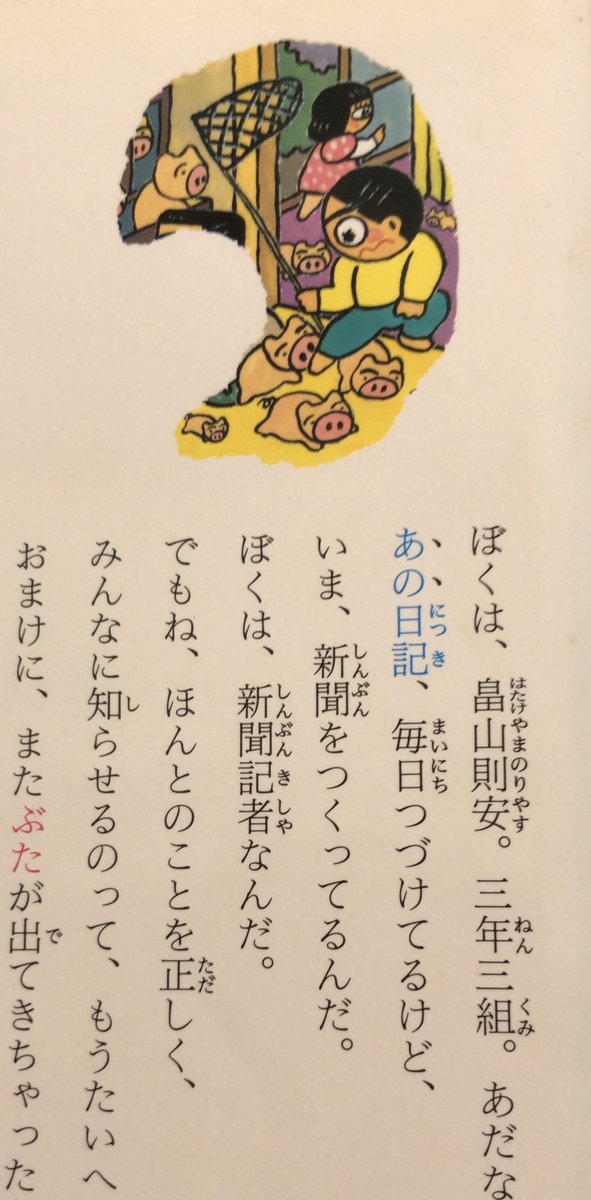 ぼくは、畠山則安。三年三組。あだな
あの日記、毎日つづけてるけど、
いま、新聞をつくってるんだ。
ぼくは、新聞記者なんだ。
でもね、ほんとのことを正しく、
みんなに知らせるのって、もうたいへ
おまけに、またぶたが出てきちゃった